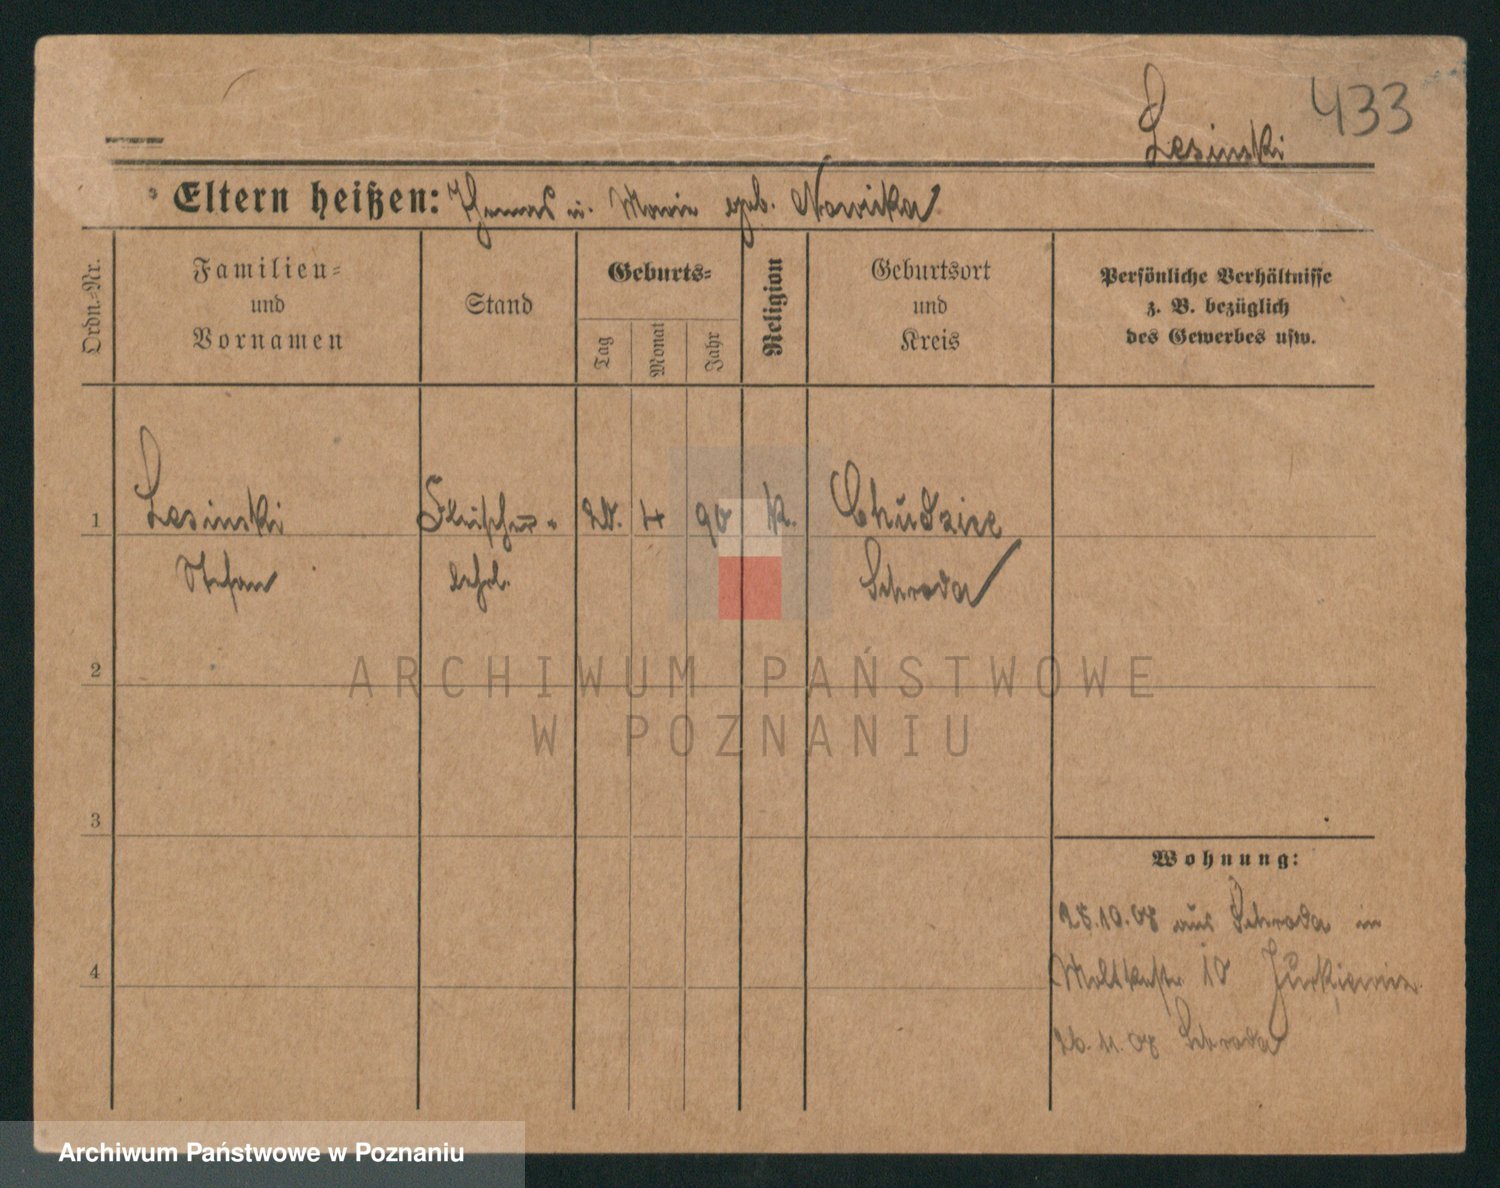 433
Lesinski
Eltern heißen: Thomas u. Marie geb. Nowicka
Ordn.-Nr.
Familien-
und
Vornamen
Stand
Geburts-
Tag
Monat
Jahr
Religion
Geburtsort
und
Kreis
Persönliche Verhältnisse
z. B. bezüglich
des Gewerbes usw.
1
Lesinski
Stefan
Fleischer-
lehrl.
4
90
K.
Chudzice
Schroda
2
3
4
Wohnung:
10.08 aus Schroda in
Moltkestr 10 Jurkiewicz
26.11.08 Schroda
ARCHIWUM PAŃSTWOWE
W POZNANIU
Archiwum Państwowe w Poznaniu